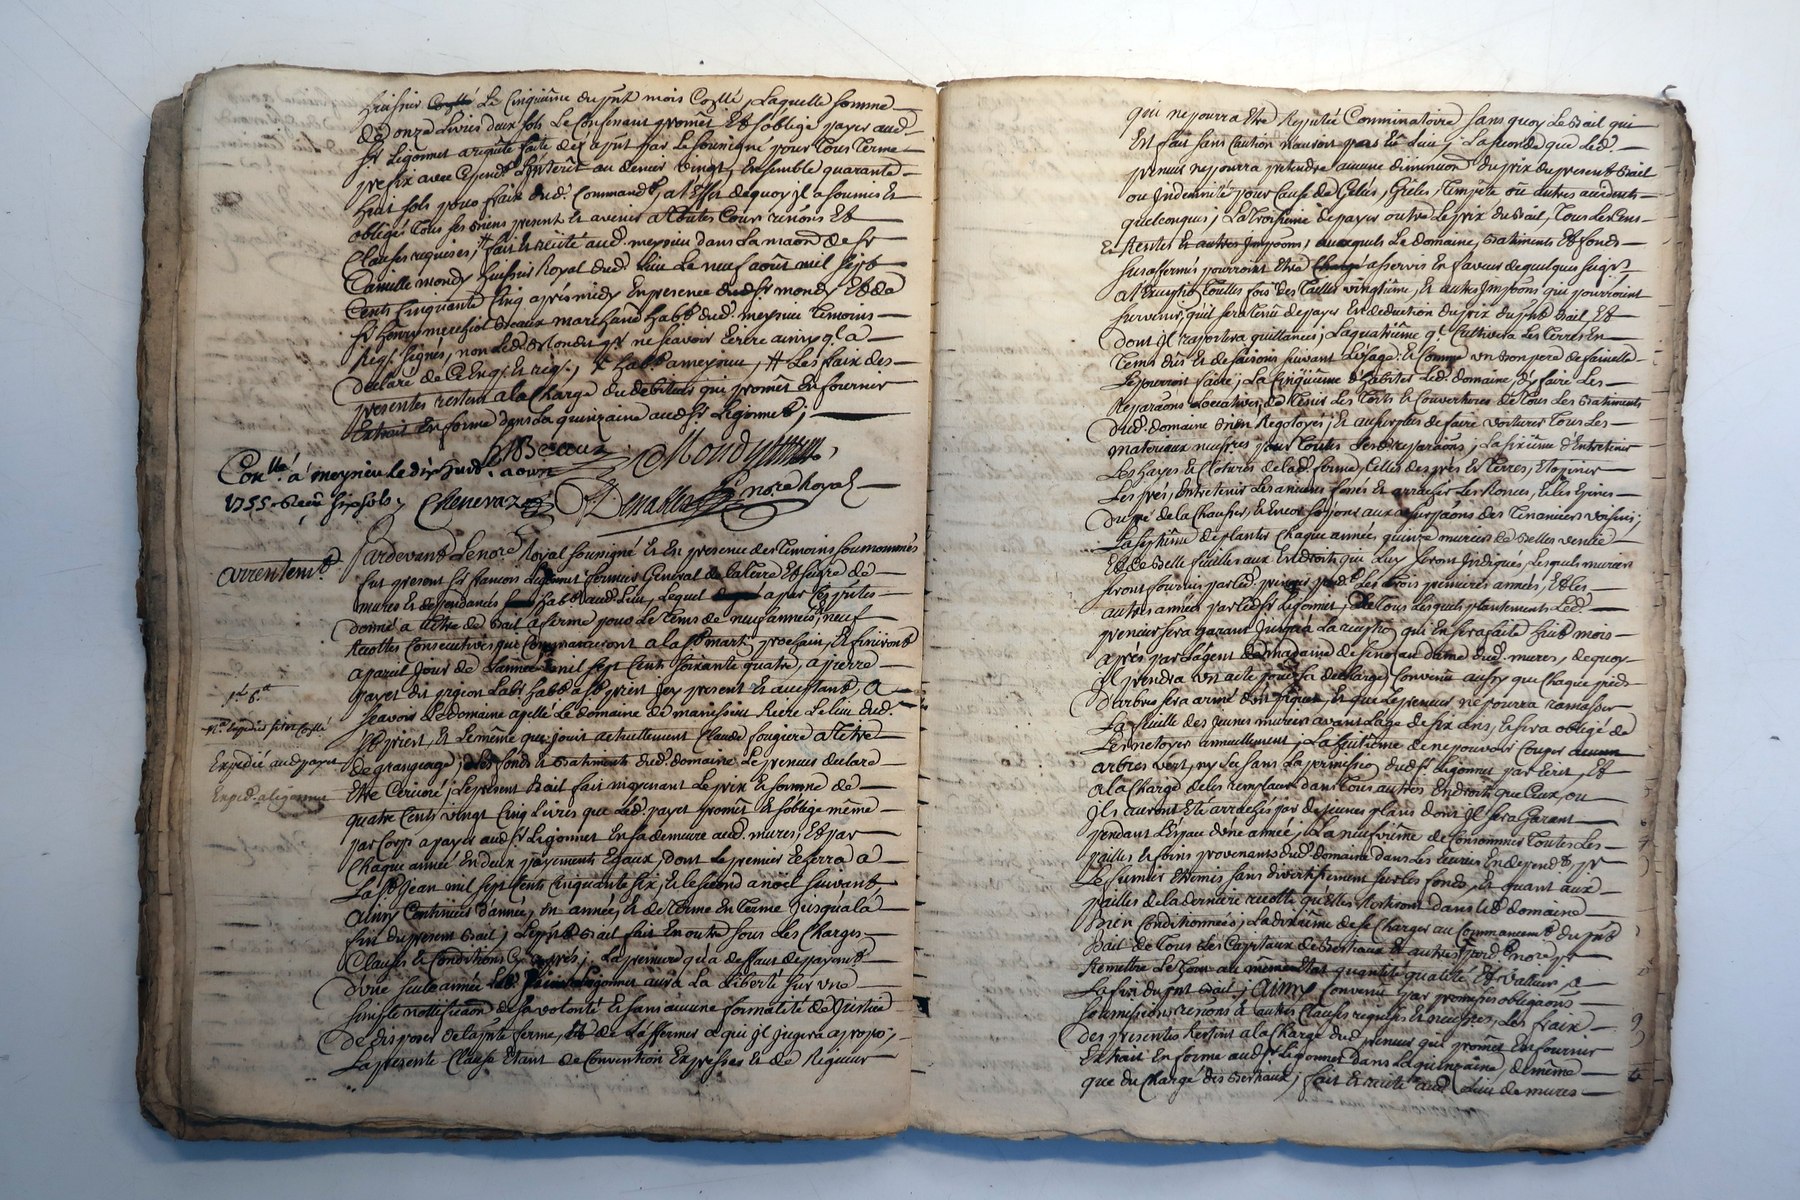 huissier Le Cinquième du pnt mois Collé, Laquelle somme
de onze Livres deux sols Le Confessant promet Et soblige payer aud.
Sr Ligonnet a requête faite diey a pnt par Le soussigné pour Tous Terme
prefix avec Cepend.t L'interêt au denier vingt, Ensemble quarante
huit sols pour fraix dud. Command.t, a l'Effet dequoy jl a soumis Et
obligé Tous ses Biens present Et avenir a Toutes Cours renons Et
Clauses requises, # fait Et recité aud. meyzieu dans La maon de Sr
Camille mondy huissier Royal dud. Lieu Le neuf août mil sept
Cents Cinquante Cinq après midy En presence dud. Sr mondy Et de
Sr henry Beaux marchand hab.t dud. meyzieu Temoins
req. signés, non Led. pr ne sçavoir Ecrire ainsy q.l a
declaré de Ce Enq. Et req., x hab.t a meyzieu, # Les fraix des
presentes restent a la Charge du debiteur qui promet En fournir
Extrait En forme dans La quinzaine aud. Sr Ligonnet;
HBeaux Mondy
Con.llé à meyzieu le dix huit aoust
1755. Reçu six sols; Chenevaz nore Royal
arrentem.t
Pardevant Le nore Royal soussigné Et En presence des Temoins sousnommés
fut present Sr françois Ligonnet fermier General de la Terre Et seigrie de
mures Et dependances hab.t aud. Lieu, Lequel a par Ces pntes
donné a titre de Bail a ferme pour Le Tems de neuf années, neuf
Recoltes Consecutives qui Commanceront a la St marti prochain, Et finiront
a pareil Jour de L'année mil sept Cents Soixante quatre, a pierre
payet dit pigeon Lab.r hab.t a St priest Jcy present Et acceptant, A
sçavoir Le domaine apellé Le domaine de manissieu Riere Le lieu dud.
St priest, Et Le même que jouit actuellement Claude fougiere a Titre
de grangeage; Les fonds & Batiments dud. domaine Le preneur declare
Expedié aud. payet
Etre Cerioré; Le present Bail fait moyenant Le prix Et somme de
Exped. a Ligonnet
quatre Cents vingt Cinq Livres que Led. payet promet Et soblige même
par Corp a payer aud. Sr Ligonnet En sa demeure aud. mures, Et par
Chaque année En deux payements Egaux, dont Le premier Echerra a
La St Jean mil sept Cents Cinquante six, Et le second a noel suivant
ainsy Continuer d'année, En année, Et de Terme En Terme jusqu'a la
fin du present Bail; Le pnt Bail fait En outre sous Les Charges
Clauses & Conditions Cy après; La premiere qu'a deffaut de payem.t
d'une seule année Led. Ligonnet aura La Liberté sur une
simple nottification de sa volonté Et sans aucune formalité de Justice
De disposer de la pnte ferme, Et de L'affermer a qui jl jugera a propos,
La presente Clause Etant de Convention Expresse Et de Rigueur
qui ne pourra Etre Reputée Comminatoire sans quoy Le Bail qui
Est fait sans Caution n'auroit pas Eu Lieu; La seconde que Led.
preneur ne pourra pretendre aucune diminution du prix du present Bail
ou Jndemnité pour Cause de Gelées, Grêles, Tempête ou autres accidents
quelconques; La Troisieme de payer outre Le prix du Bail, Tous Les Cens
Et Rentes Et autres Jmpoons, auxquels Le domaine, Batiments Et fonds
susaffermés pourroient Etre asservis En faveur de quelques seigrs
a L'Exceptio Toutes fois des Tailles, vingtième, Et autres Jmpoons qui pourroient
survenir, qu'il sera Tenu de payer En deduction du prix du pnt Bail, Et
dont Jl raportera quittances; La quatrième q.l Cultivera Les Terres En
Tems dûs Et de saisons suivant L'usage, Et Comme un bon pere de famille
Le pourroit faire; La Cinquième d'habiter Led. domaine, d'y faire Les
Reparaons Locatives, de Tenir Les Torts & Couvertures de Tous Les Batiments
dud. domaine Bien Regotoyés; Et au surplus de faire voiturer Tous Les
materiaux necssres pour Toutes Lesd. reparaons; La sixième d'Entretenir
Les hayes Et Clotures de lad. ferme, Celles des prés Et Terres,
Les prés, Entretenir Les anciens fossés Et arracher Les Ronces, Et les Epines
du pré de la Chaussier,
La septième de planter Chaque années quinze muriers de Belles venüe
Et de Belle feuilles aux Endroits qui Luy seront Jndiqués, Lesquels muriers
seront fournis par Led. preneur Les Trois premieres années, Et les
autres années par Led. Sr Ligonnet, De Tous Lesquels plantements Led.
preneur sera garant jusqu'a La receptio qui En sera faite huit mois
après par L'agent de madame de dud. mures, dequoy
Jl prendra un acte pour sa decharge, Convenu aussy que Chaque pieds
d'arbres sera armé d'Epines, Et que Le preneur ne pourra ramasser
La feuille des Jeunes muriers avant L'age de six ans, Et sera obligé de
Les netoyer annuellement; La huitieme de ne pouvoir Couper aucun
arbres vert, ny sec sans La permissio dud. Sr Ligonnet par Ecrit, Et
a la Charge de les remplacer dans Tous autres Endroits que Ceux, ou
Jls auront Eté arrachés par de jeunes plans dont Jl sera Garant
pendant L'Espace d'une année; La neufvième de Consommer Toutes Les
pailles & foins provenants dud. domaine dans Les Ecuries En depend.t pr
Le fumier Etre mis sans divertissement sur les fonds, Et quant aux
pailles de La derniere recolte qu'Elles Resteront dans led. domaine
Bien Conditionnées; La dixième de se Charger au Commancem.t du pnt
Bail de Tous Les Capitaux de Bestiaux Et autres
Remettre Le Tout au même Etat quantité qualité Et valleur a
La fin du pnt Bail; Ainsy Convenu par promesses obligaons
soumissions, renons & autres Clauses requises Et necssres, Les fraix
des presentes Restent a la Charge dud. preneur qui promet En fournir
Extrait En forme aud. Sr Ligonnet dans La quinzaine, de même
que du Chargé des Bestiaux; fait Et recité aud. Lieu de mures